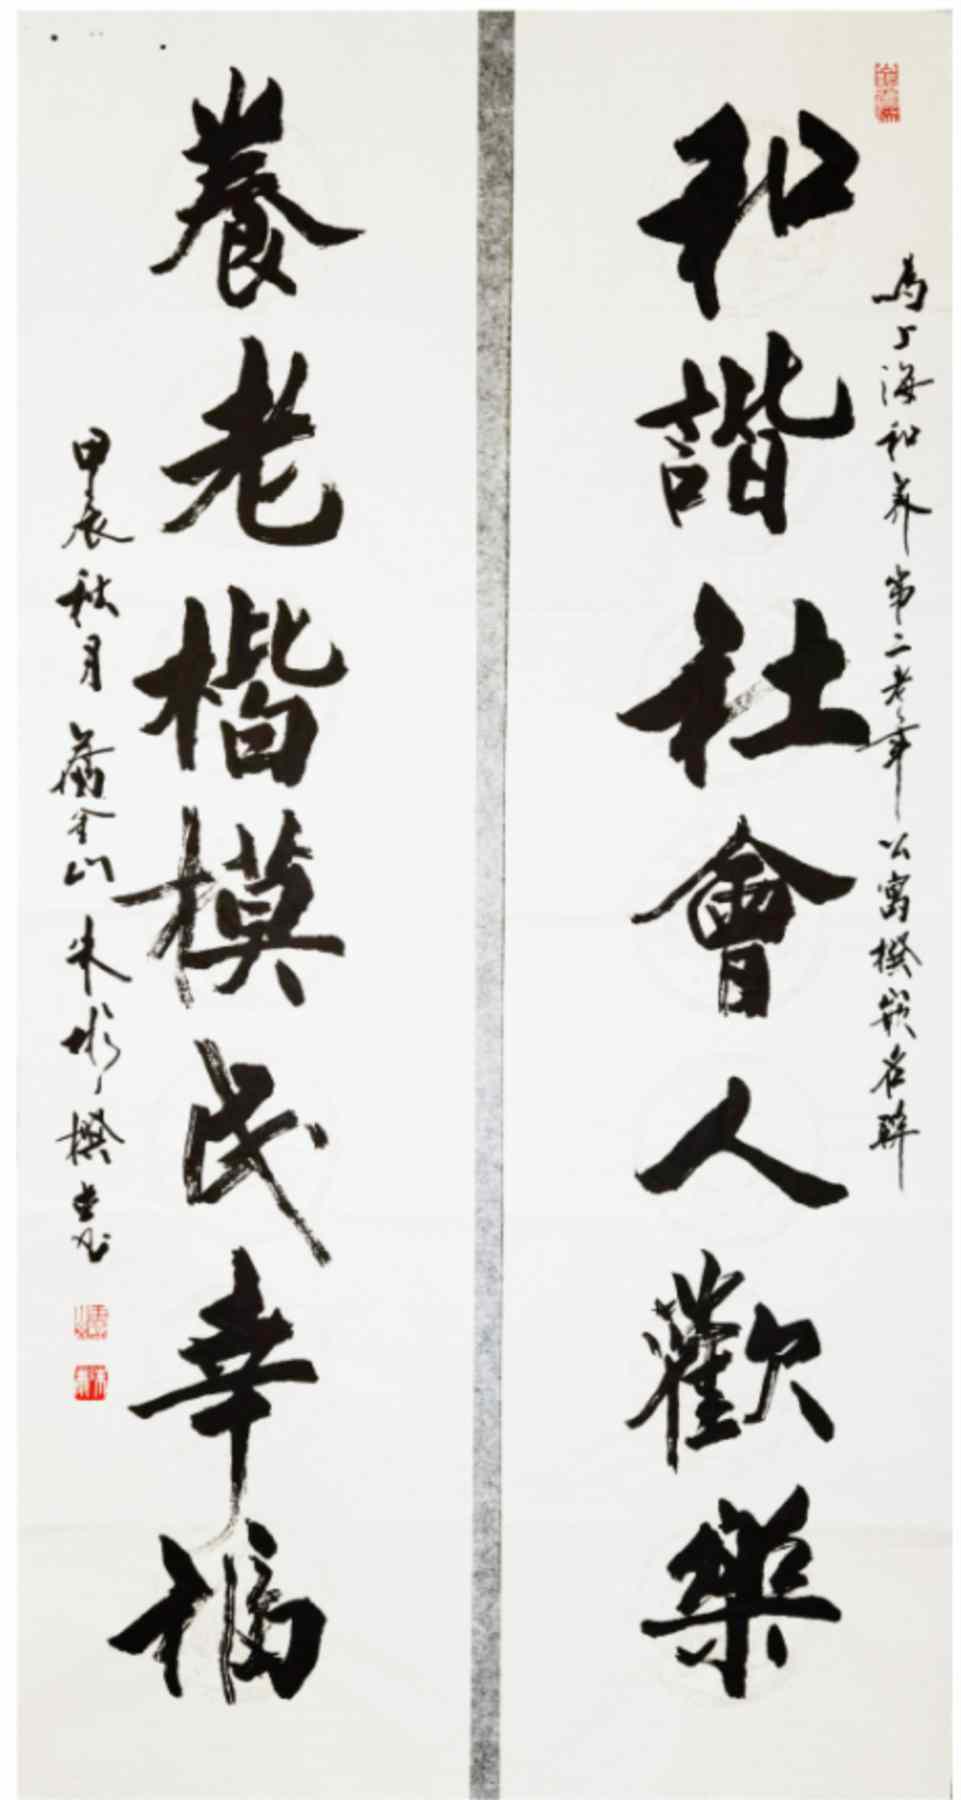 為上海和养第二老年公寓撰嵌名聯
和諧社會人歡樂
養老楷模民幸福
甲辰秋月舊金山朱撰书